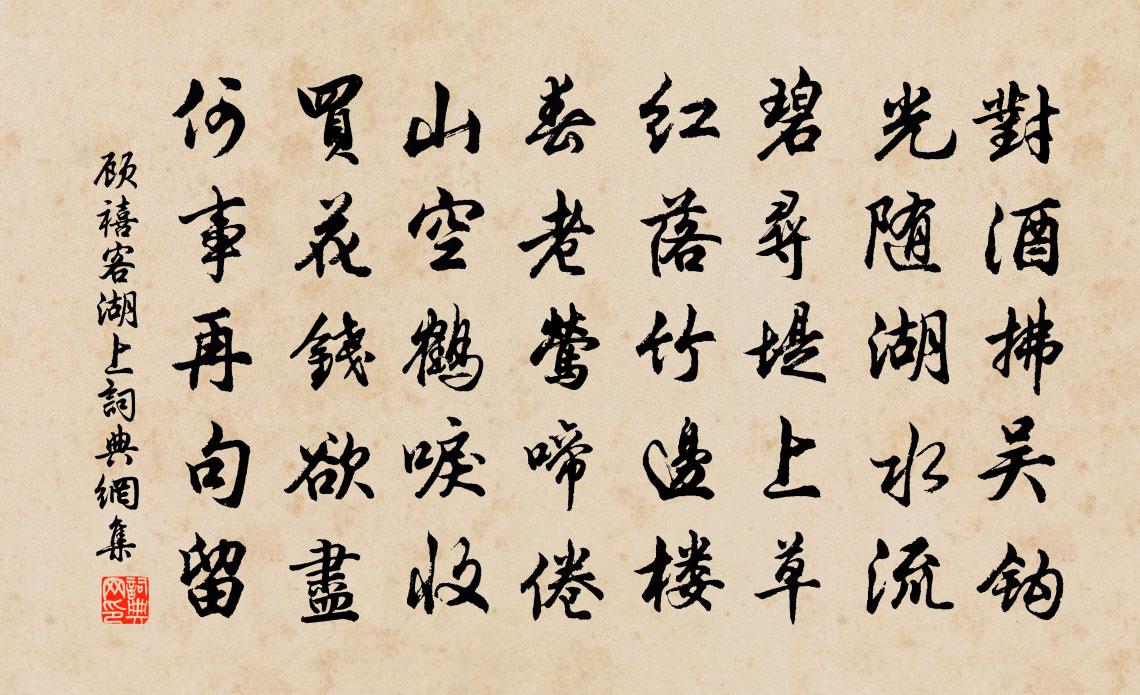 對酒拂吴钩
光随湖水流
碧尋堤上草
红落竹邊楼
春老鶯啼倦
山空鶴唳收
買花錢欲盡
何事再句留
顾禧客湖上詞典網集
詞典网印